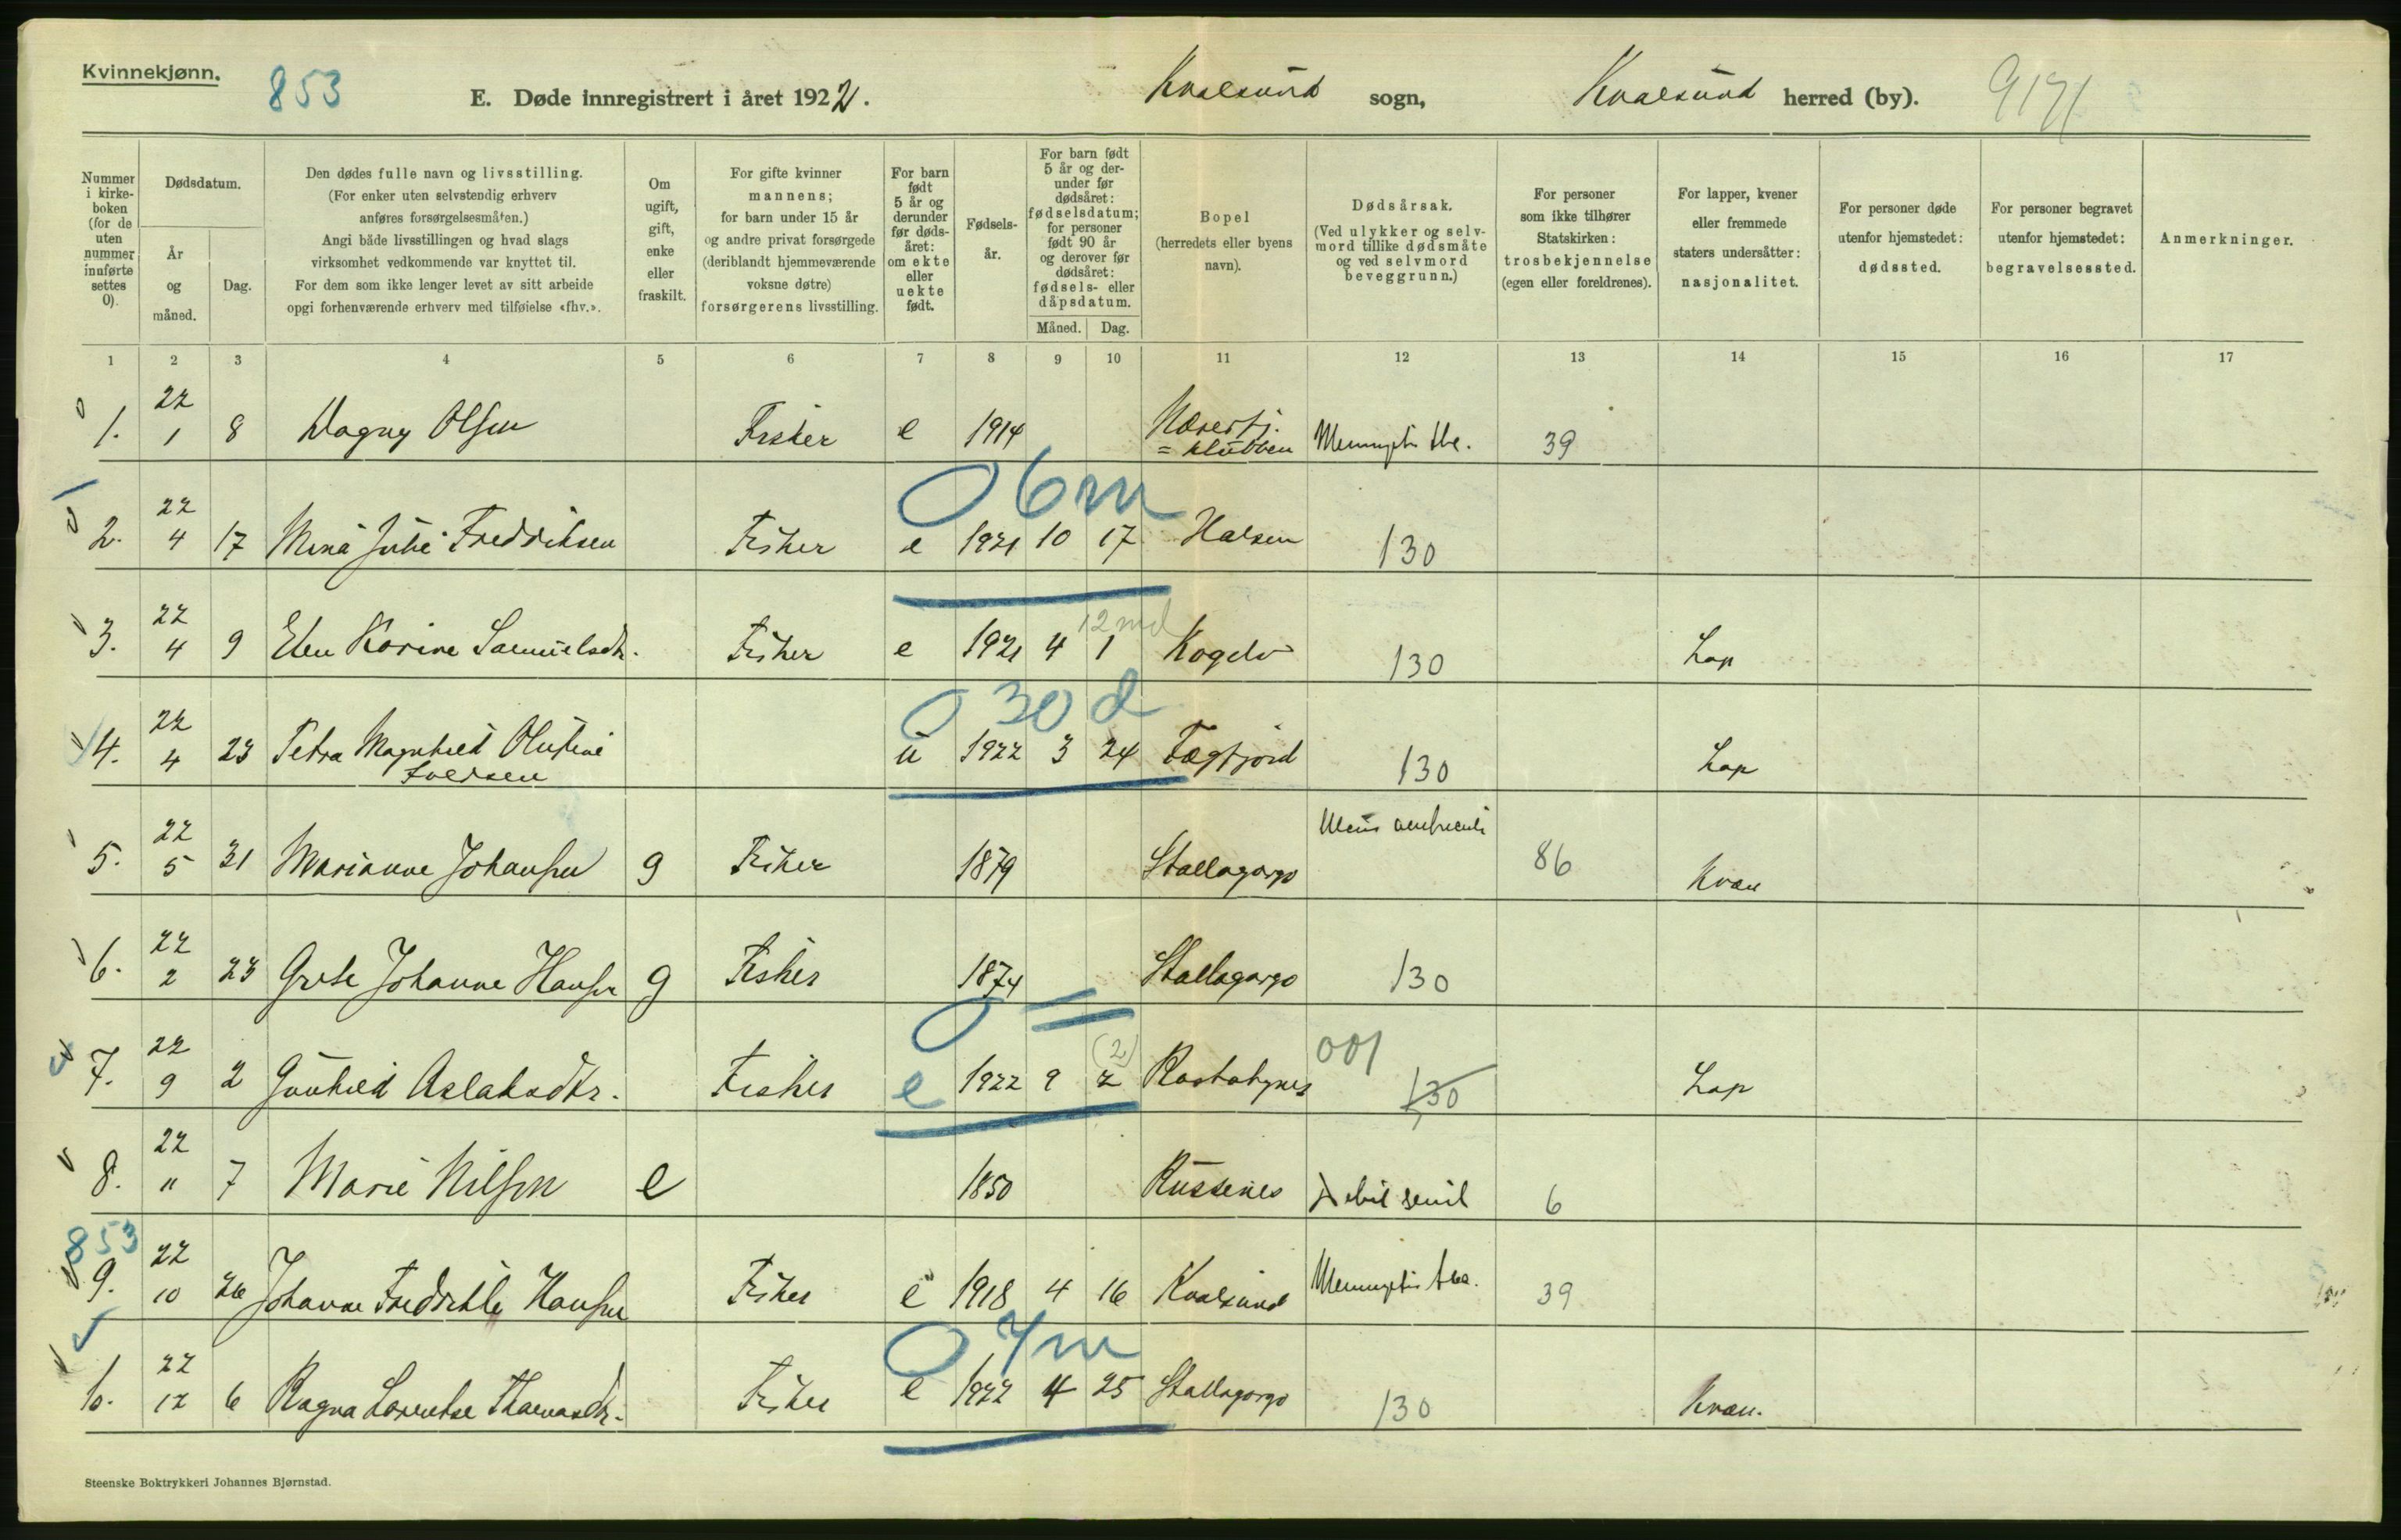 Kvinnekjønn.
853
E. Døde innregistrert i året 1922.
Kvalsund sogn,
Kvalsund herred (by).
9171
Nummer i kirke-boken (for de uten nummer innførte settes 0).
Dødsdatum.
År og måned.
Dag.
Den dødes fulle navn og livsstilling.
(For enker uten selvstendig erhverv
anføres forsørgelsesmåten.)
Angi både livsstillingen og hvad slags
virksomhet vedkommende var knyttet til.
For dem som ikke lenger levet av sitt arbeide
opgi forhenværende erhverv med tilføielse «fhv.».
Om ugift, gift, enke eller fraskilt.
For gifte kvinner
mannens;
for barn under 15 år
og andre privat forsørgede
(deriblandt hjemmeværende
voksne døtre)
forsørgerens livsstilling.
For barn født 5 år og derunder før døds-året: om ekte eller uekte født.
Fødsels-år.
For barn født 5 år og der-under før dødsåret: fødselsdatum; for personer født 90 år og derover før dødsåret: fødsels- eller dåpsdatum.
Måned. Dag.
Bopel
(herredets eller byens
navn).
Dødsårsak.
(Ved ulykker og selv-
mord tillike dødsmåte
og ved selvmord
beveggrunn.)
For personer
som ikke tilhører
Statskirken:
trosbekjennelse
(egen eller foreldrenes).
For lapper, kvener
eller fremmede
staters undersåtter:
nasjonalitet.
For personer døde
utenfor hjemstedet:
dødssted.
For personer begravet
utenfor hjemstedet:
begravelsessted.
Anmerkninger.
1 2 3 4 5 6 7 8 9 10 11 12 13 14 15 16 17
1. 22 1 8 Dagny Olsen Fisker e 1914 = klubben 39
0 6m
2. 22 4 17 Fredriksen Fisker e 1921 10 17 Halsen 130
12 md
3. 22 4 9 Elen Karine Samuelsdtr. Fisker e 1921 4 1 130 Lap
0 30 d
4. 22 4 23 Petra Magnhild u 1922 3 24 130 Lap
5. 22 5 31 Marianne Johansen g Fisker 1879 Stallogargo 86 Kvæn
6. 22 2 23 Johanne Hansen g Fisker 1874 Stallogargo 130
0
7. 22 9 2 Gunhild Aslaksdtr. Fisker e 1922 9 2 (2) 001 130 Lap
8. 22 11 7 Marie Nilsen e 1850 Russenes Debil senil 6
853
9. 22 10 26 Johanne Hansen Fisker e 1918 4 16 Kvalsund 39
0 7m
10. 22 12 6 Ragna Lorentse Fisker e 1922 4 25 Stallogargo 130 Kvæn.
Steenske Boktrykkeri Johannes Bjørnstad.